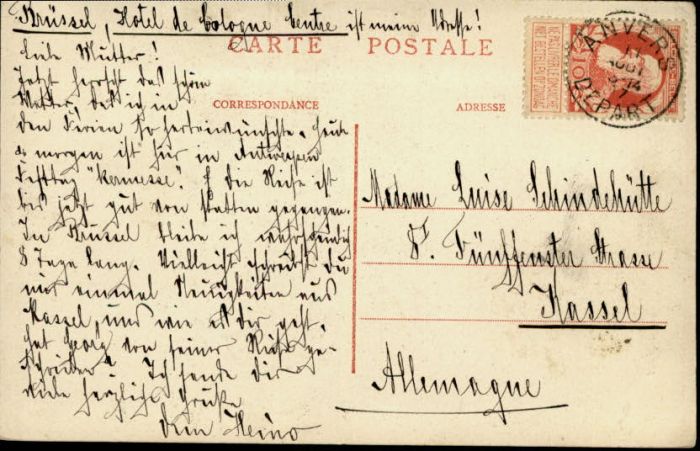 Brüssel, Hotel de Cologne Centre ist meine Adresse!
CARTE POSTALE
CORRESPONDANCE
ADRESSE
NE PAS LIVRER LE DIMANCHE
NIET BESTELLEN OP ZONDAG
10
ANVERS
DEPART
Liebe Mutter!
Jetzt herrscht das schöne
Wetter, das ich in
den Ferien so herbeiwünschte. Heute
& morgen ist hier in Antwerpen
Festtag "Kermesse". & die Reise ist
bis jetzt gut von statten gegangen.
In Brüssel bleibe ich wahrscheinlich
8 Tage lang. Vielleicht schreibst Du
mir einmal Neuigkeiten aus
Kassel, und wie es Dir geht.
Hat von seiner Reise ge-
schrieben? Ich sende Dir
viele herzliche Grüße
Dein Heino
Madame Luise Schindehütte
8. Fünffenster Strasse
Kassel
Allemagne